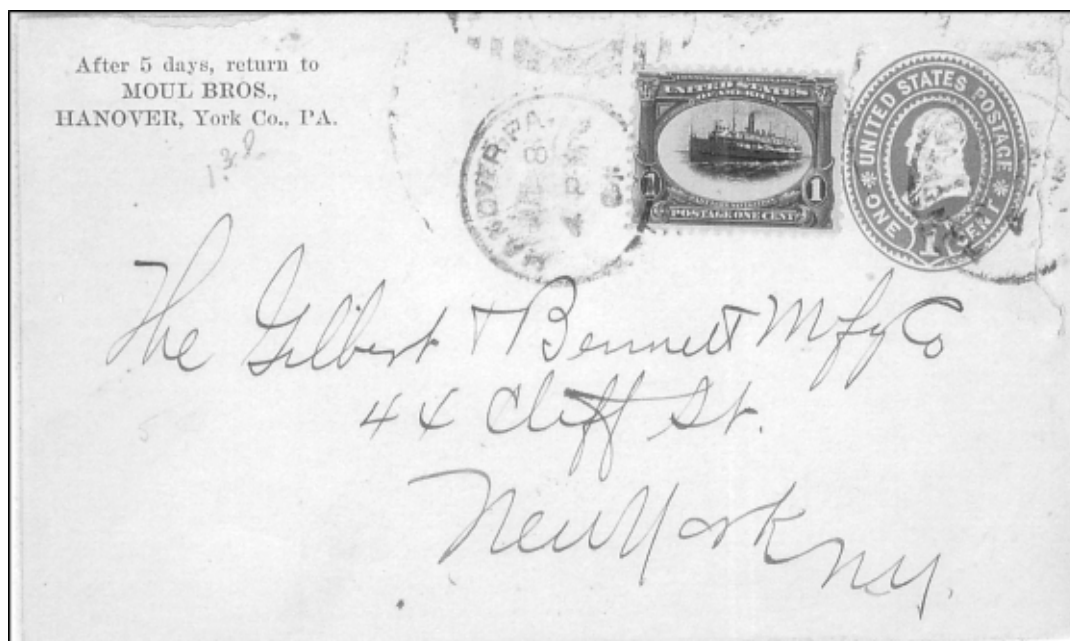 After 5 days, return to
MOUL BROS.,
HANOVER, York Co., PA.
HANOVER, PA.
8
4 P
UNITED STATES
POSTAGE ONE CENT
1
1
UNITED STATES POSTAGE
ONE 1 CENT
The Gilbert & Bennett Mfg Co
44 Cliff St.
New York NY.